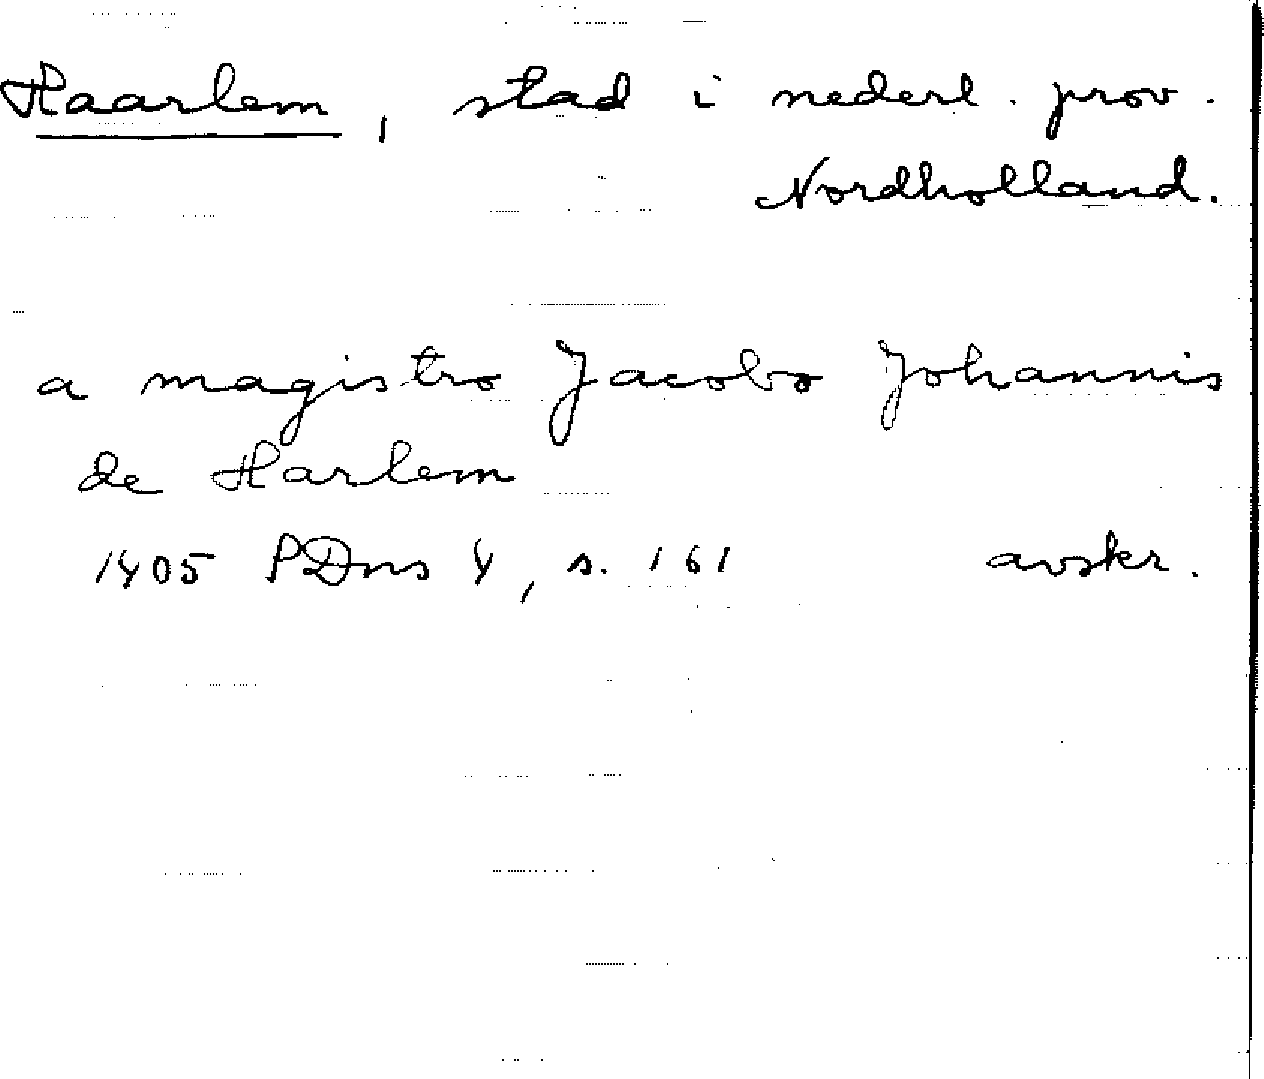 Haarlem, stad i nederl. prov.
Nordholland.
a magistro Jacobo Johannis
de Harlem
1405 PDns 4, s. 161 avskr.